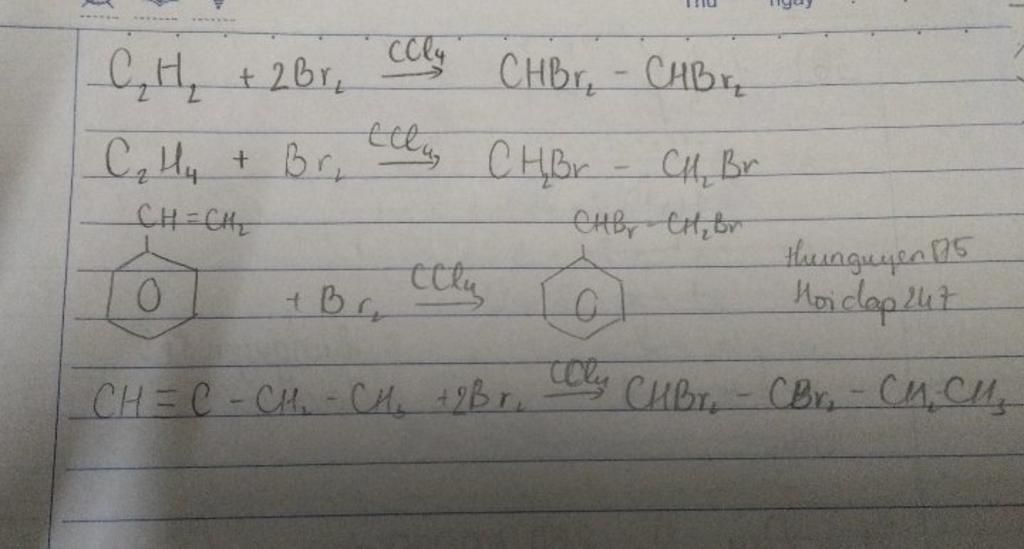 Thứ ngày
C₂H₂ + 2Br₂ —CCl₄→ CHBr₂ - CHBr₂
C₂H₄ + Br₂ —CCl₄→ CH₂Br - CH₂Br
CH=CH₂ CHBr - CH₂Br
+ Br₂ —CCl₄→
thunguyen175
Hoidap247
CH≡C - CH₂ - CH₃ +2Br₂ —CCl₄→ CHBr₂ - CBr₂ - CH₂CH₃